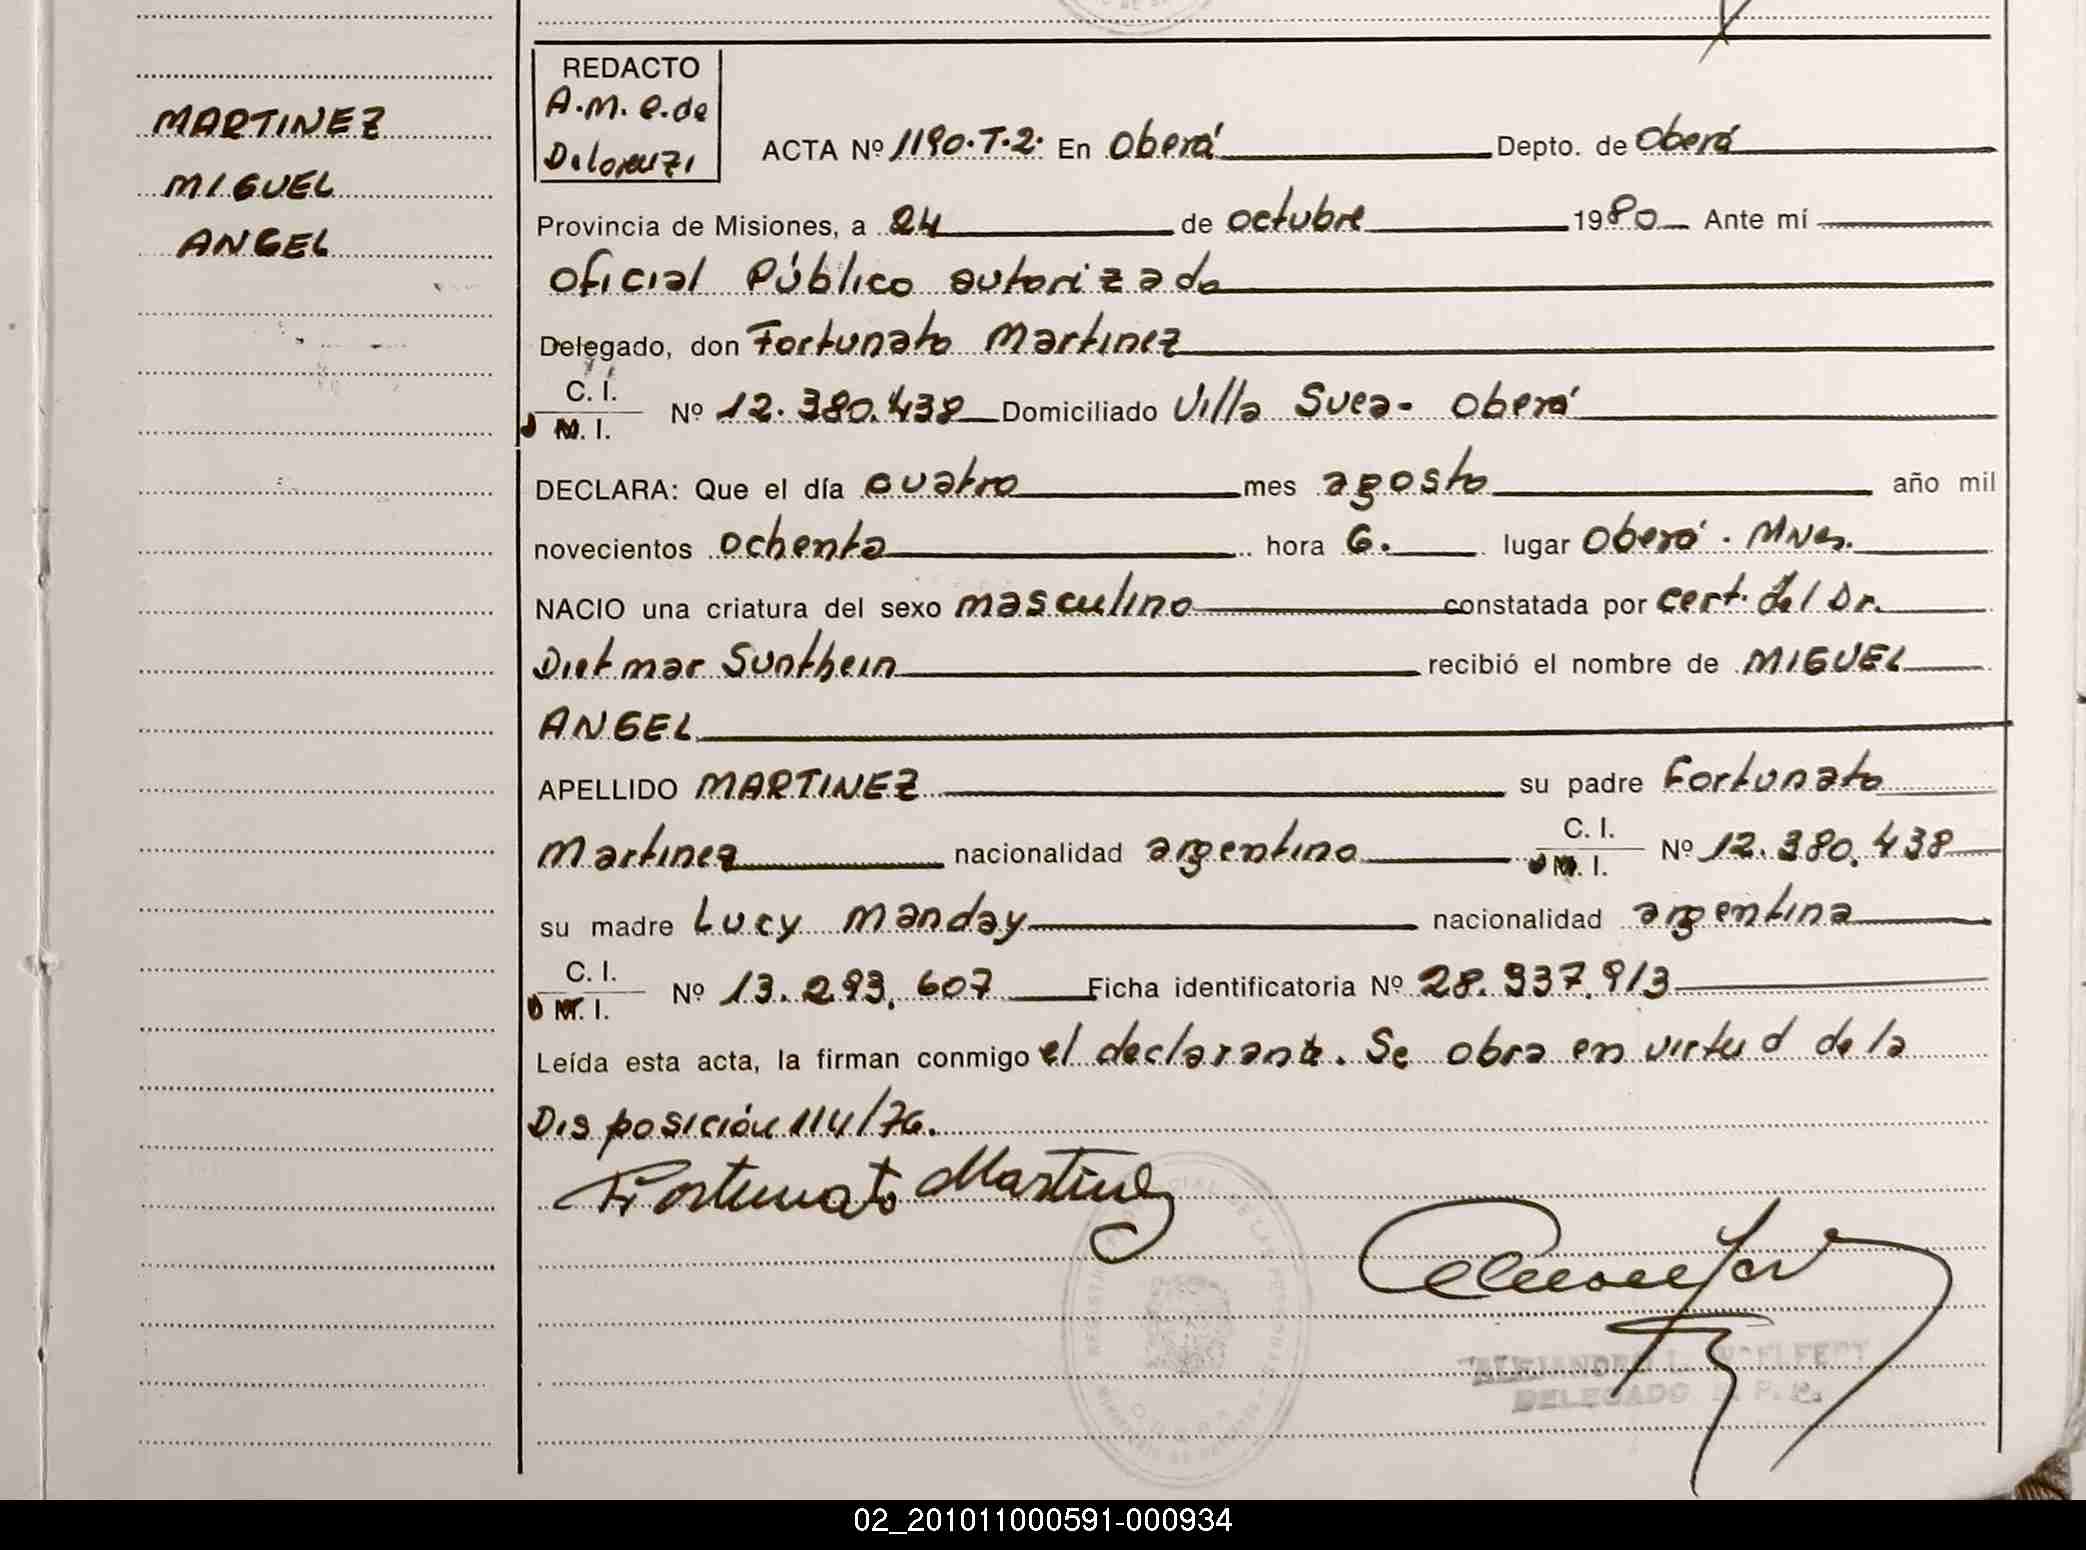 MARTINEZ
MIGUEL
ANGEL
REDACTO
A.M. e.de
Delorenzi
ACTA Nº 1190.T.2. En Oberá Depto. de Oberá
Provincia de Misiones, a 24 de octubre 1980 Ante mí
Oficial Público autorizado
Delegado, don Fortunato Martinez
C. I.
M. I. Nº 12.380.438 Domiciliado Villa Svea - Oberá
DECLARA: Que el día cuatro mes agosto año mil
novecientos ochenta hora 6. lugar Oberá. Mnes.
NACIO una criatura del sexo masculino constatada por cert. del Dr.
Dietmar Sunthein recibió el nombre de MIGUEL
ANGEL
APELLIDO MARTINEZ su padre Fortunato
Martinez nacionalidad argentino C. I. M. I. Nº 12.380.438
su madre Lucy Manday nacionalidad argentina
C. I.
M. I. Nº 13.293.607 Ficha identificatoria Nº 28.937.913
Leída esta acta, la firman conmigo el declarante. Se obra en virtud de la
Disposición 114/76.
Fortunato Martinez
DELEGADO R. P. P.
02_201011000591-000934